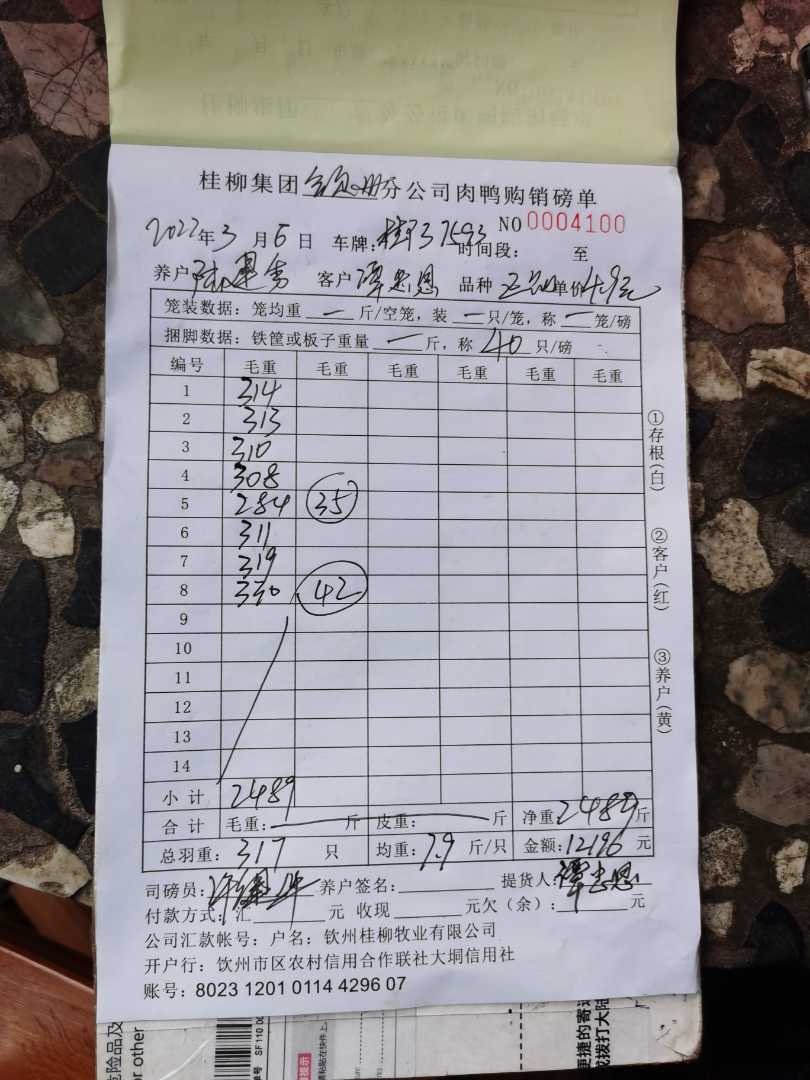 桂柳集团钦州分公司肉鸭购销磅单
NO 0004100
2022年3月6日 车牌: 时间段: 至
养户 客户 谭志恩 品种 单价4.9元
笼装数据: 笼均重 一 斤/空笼, 装 一 只/笼, 称 一 笼/磅
捆脚数据: 铁筐或板子重量 一 斤, 称 40 只/磅
编号 毛重 毛重 毛重 毛重 毛重 毛重
1 314
2 313
3 310
4 308
5 284 35
6 311
7 319
8 330 42
9
10
11
12
13
14
小计 2489
合计 毛重: 斤 皮重: 斤 净重 2489 斤
总羽重: 317 只 均重: 7.9 斤/只 金额: 12196 元
司磅员: 养户签名: 提货人: 谭志恩
付款方式: 汇 元 收现 元欠(余): 元
公司汇款帐号: 户名: 钦州桂柳牧业有限公司
开户行: 钦州市区农村信用合作联社大垌信用社
账号: 8023 1201 0114 4296 07
①存根(白)
②客户(红)
③养户(黄)
or other
SF110
便捷的寄
或拨打大陆